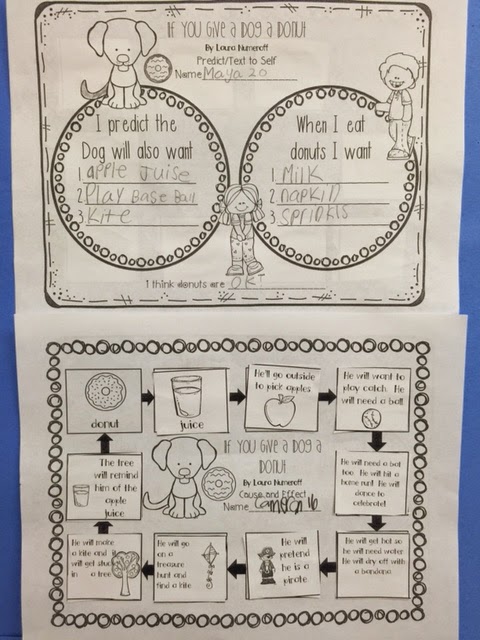 IF YOU GIVE A DOG A DONUT
By Laura Numeroff
Predict/Text to Self
Name Maya 20
I predict the
Dog will also want
1. apple Juise
2. Play Base Ball
3. Kite
When I eat
donuts I want
1. MilK
2. napKin
3. SpriNKls
I think donuts are OK!
donut
juice
He'll go outside
to pick apples
He will want to
play catch. He
will need a ball.
He will need a bat
too. He will hit a
home run! He will
dance to
celebrate!
He will get hot so
he will need water.
He will dry off with
a bandana.
He will
pretend
he is a
pirate.
He will go
on a
treasure
hunt and
find a kite
He will make
a kite and it
will get stuck
in a tree
The tree
will remind
him of the
apple
juice
IF YOU GIVE A DOG A
DONUT
By Laura Numeroff
Cause and Effect
Name Cameron 16